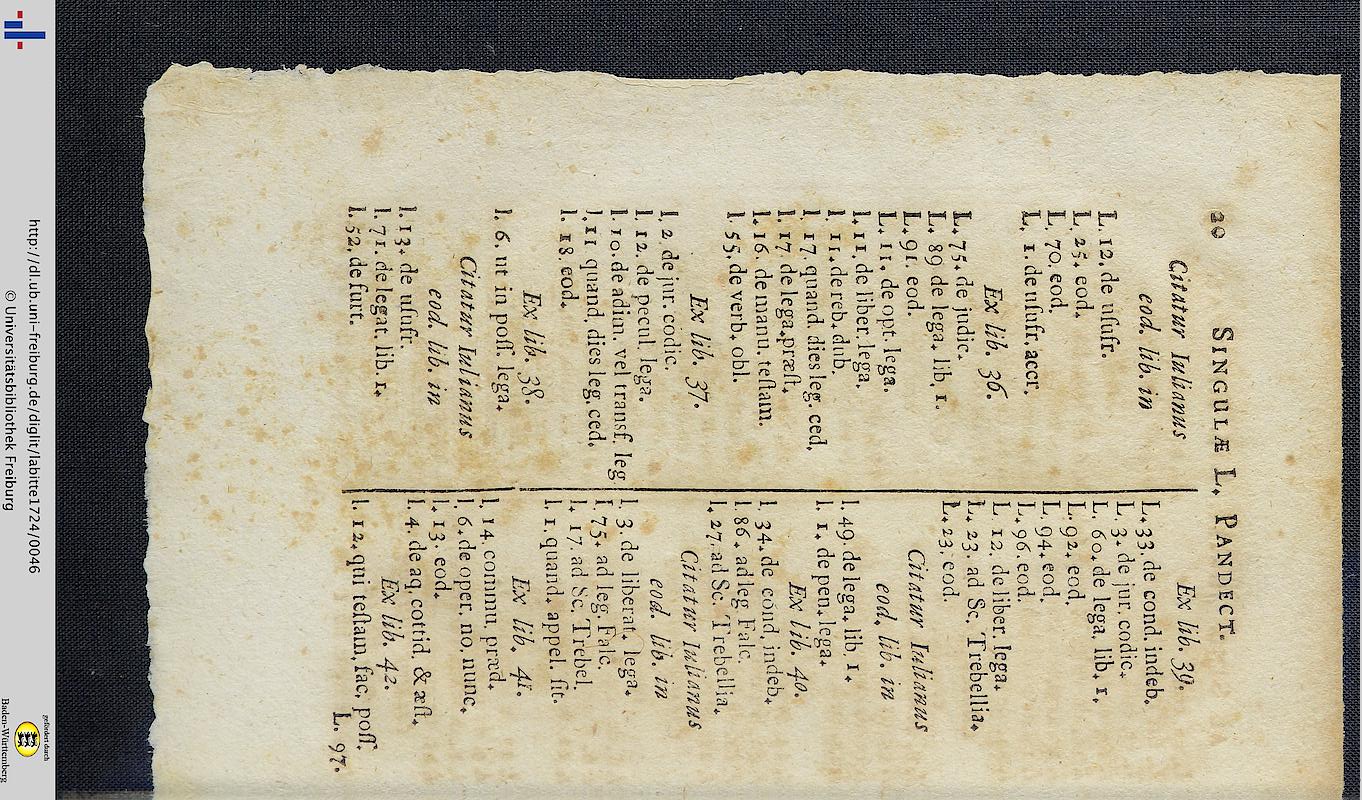 20 SINGULÆ L. PANDECT.
Citatur Iulianus
eod. lib. in
L. 12. de uſufr.
L. 25. eod.
L. 70. eod.
L. 1. de uſufr. accr.
Ex lib. 36.
L. 75. de judic.
L. 89 de lega. lib. 1.
L. 91. eod.
L. 11. de opt. lega.
l. 11. de liber. lega.
l. 11. de reb. dub.
l. 17. quand. dies leg. ced.
l. 17 de lega. præſt.
l. 16. de manu. teſtam.
l. 55. de verb. obl.
Ex lib. 37.
l. 2. de jur. codic.
l. 12. de pecul. lega.
l. 10. de adim. vel transf. leg
l. 11 quand. dies leg. ced.
l. 18. eod.
Ex lib. 38.
l. 6. ut in poſſ. lega.
Citatur Iulianus
eod. lib. in
l. 13. de uſufr.
l. 71. de legat. lib. 1.
l. 52. de furt.
Ex lib. 39.
L. 33. de cond. indeb.
L. 3. de jur. codic.
L. 60. de lega. lib. 1.
L. 92. eod.
L. 94. eod.
L. 96. eod.
L. 12. de liber. lega.
L. 23. ad Sc. Trebellia.
L. 23. eod.
Citatur Iulianus
eod. lib. in
l. 49. de lega. lib. 1.
l. 1. de pen. lega.
Ex lib. 40.
l. 34. de cond. indeb.
l. 86. ad leg Falc.
L. 27. ad Sc. Trebellia.
Citatur Iulianus
eod. lib. in
l. 3. de liberat. lega.
l. 75. ad leg. Falc.
l. 17. ad Sc. Trebel.
l. 1. quand. appel. ſit.
Ex lib. 41.
l. 14. commu. præd.
l. 6. de oper. no. nunc.
l. 13. eod.
l. 4. de aq. cottid. & æſt.
Ex lib. 42.
l. 12. qui teſtam. fac. poſſ.
L. 97.
http://dl.ub.uni-freiburg.de/diglit/labitte1724/0046
© Universitätsbibliothek Freiburg
gefördert durch
Baden-Württemberg